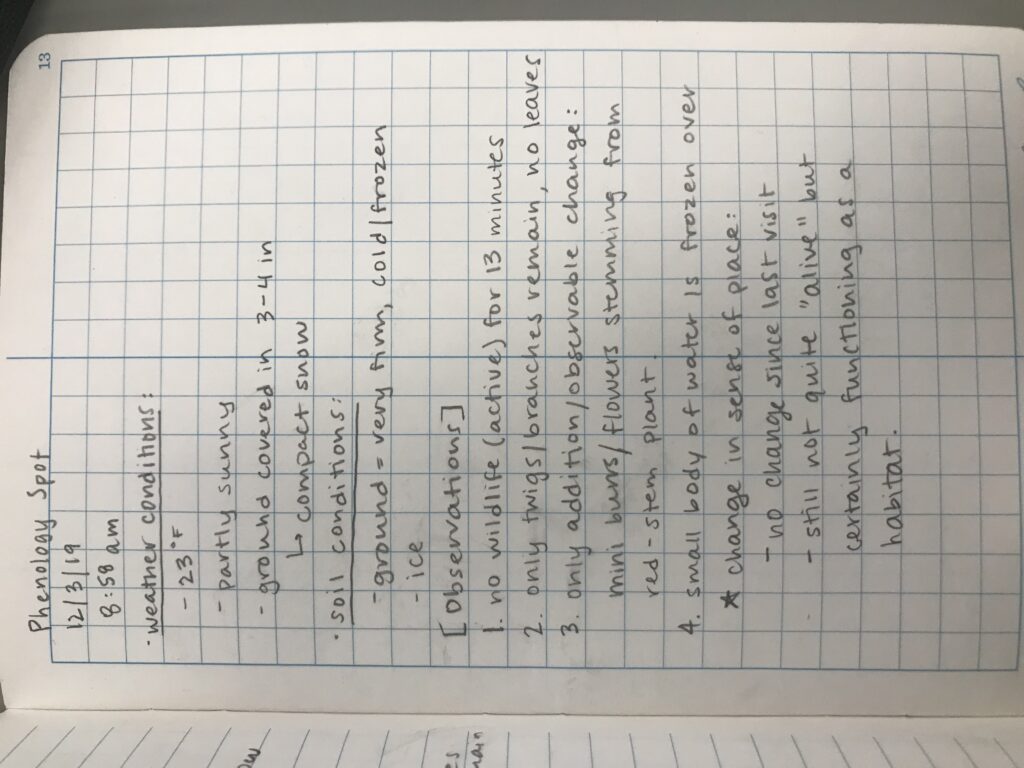 13
Phenology Spot
12/3/19
8:58 am
· weather conditions:
- 23°F
- partly sunny
- ground covered in 3-4 in
↳ compact snow
· soil conditions:
- ground = very firm, cold/frozen
- ice
[Observations]
1. no wildlife (active) for 13 minutes
2. only twigs/branches remain, no leaves
3. only addition/observable change:
mini burrs/flowers stemming from
red-stem plant.
4. small body of water is frozen over
★ change in sense of place:
- no change since last visit
- still not quite "alive" but
certainly functioning as a
habitat.